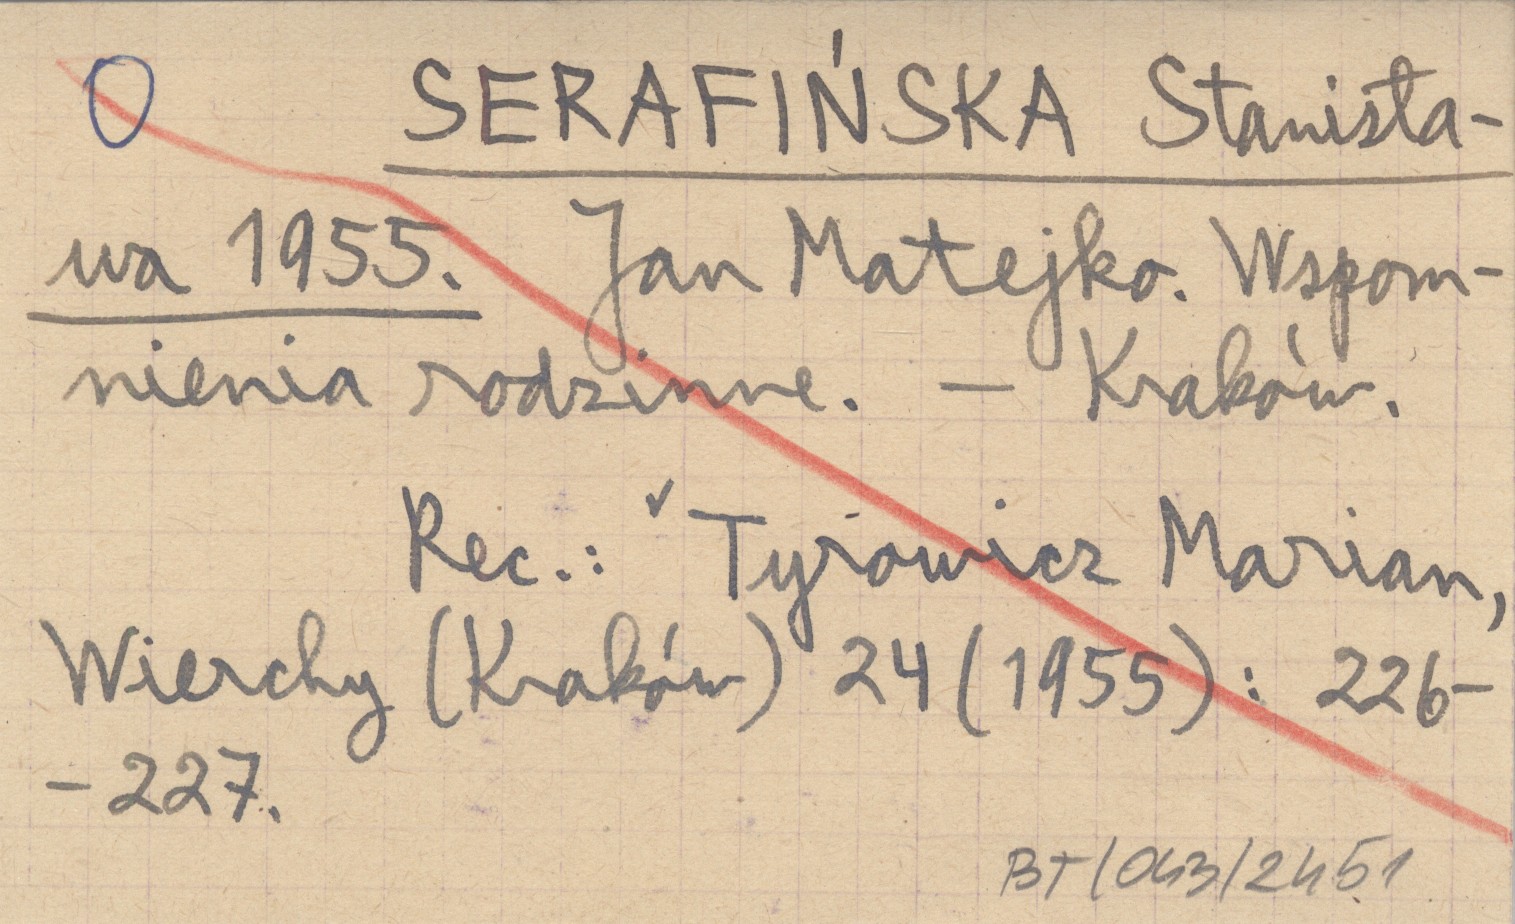 O SERAFIŃSKA Stanisła-
wa 1955. Jan Matejko. Wspom-
nienia rodzinne. — Kraków.
Rec.: ✓ Tyrowicz Marian,
Wierchy (Kraków) 24 (1955): 226-
-227.
BT/043/2451